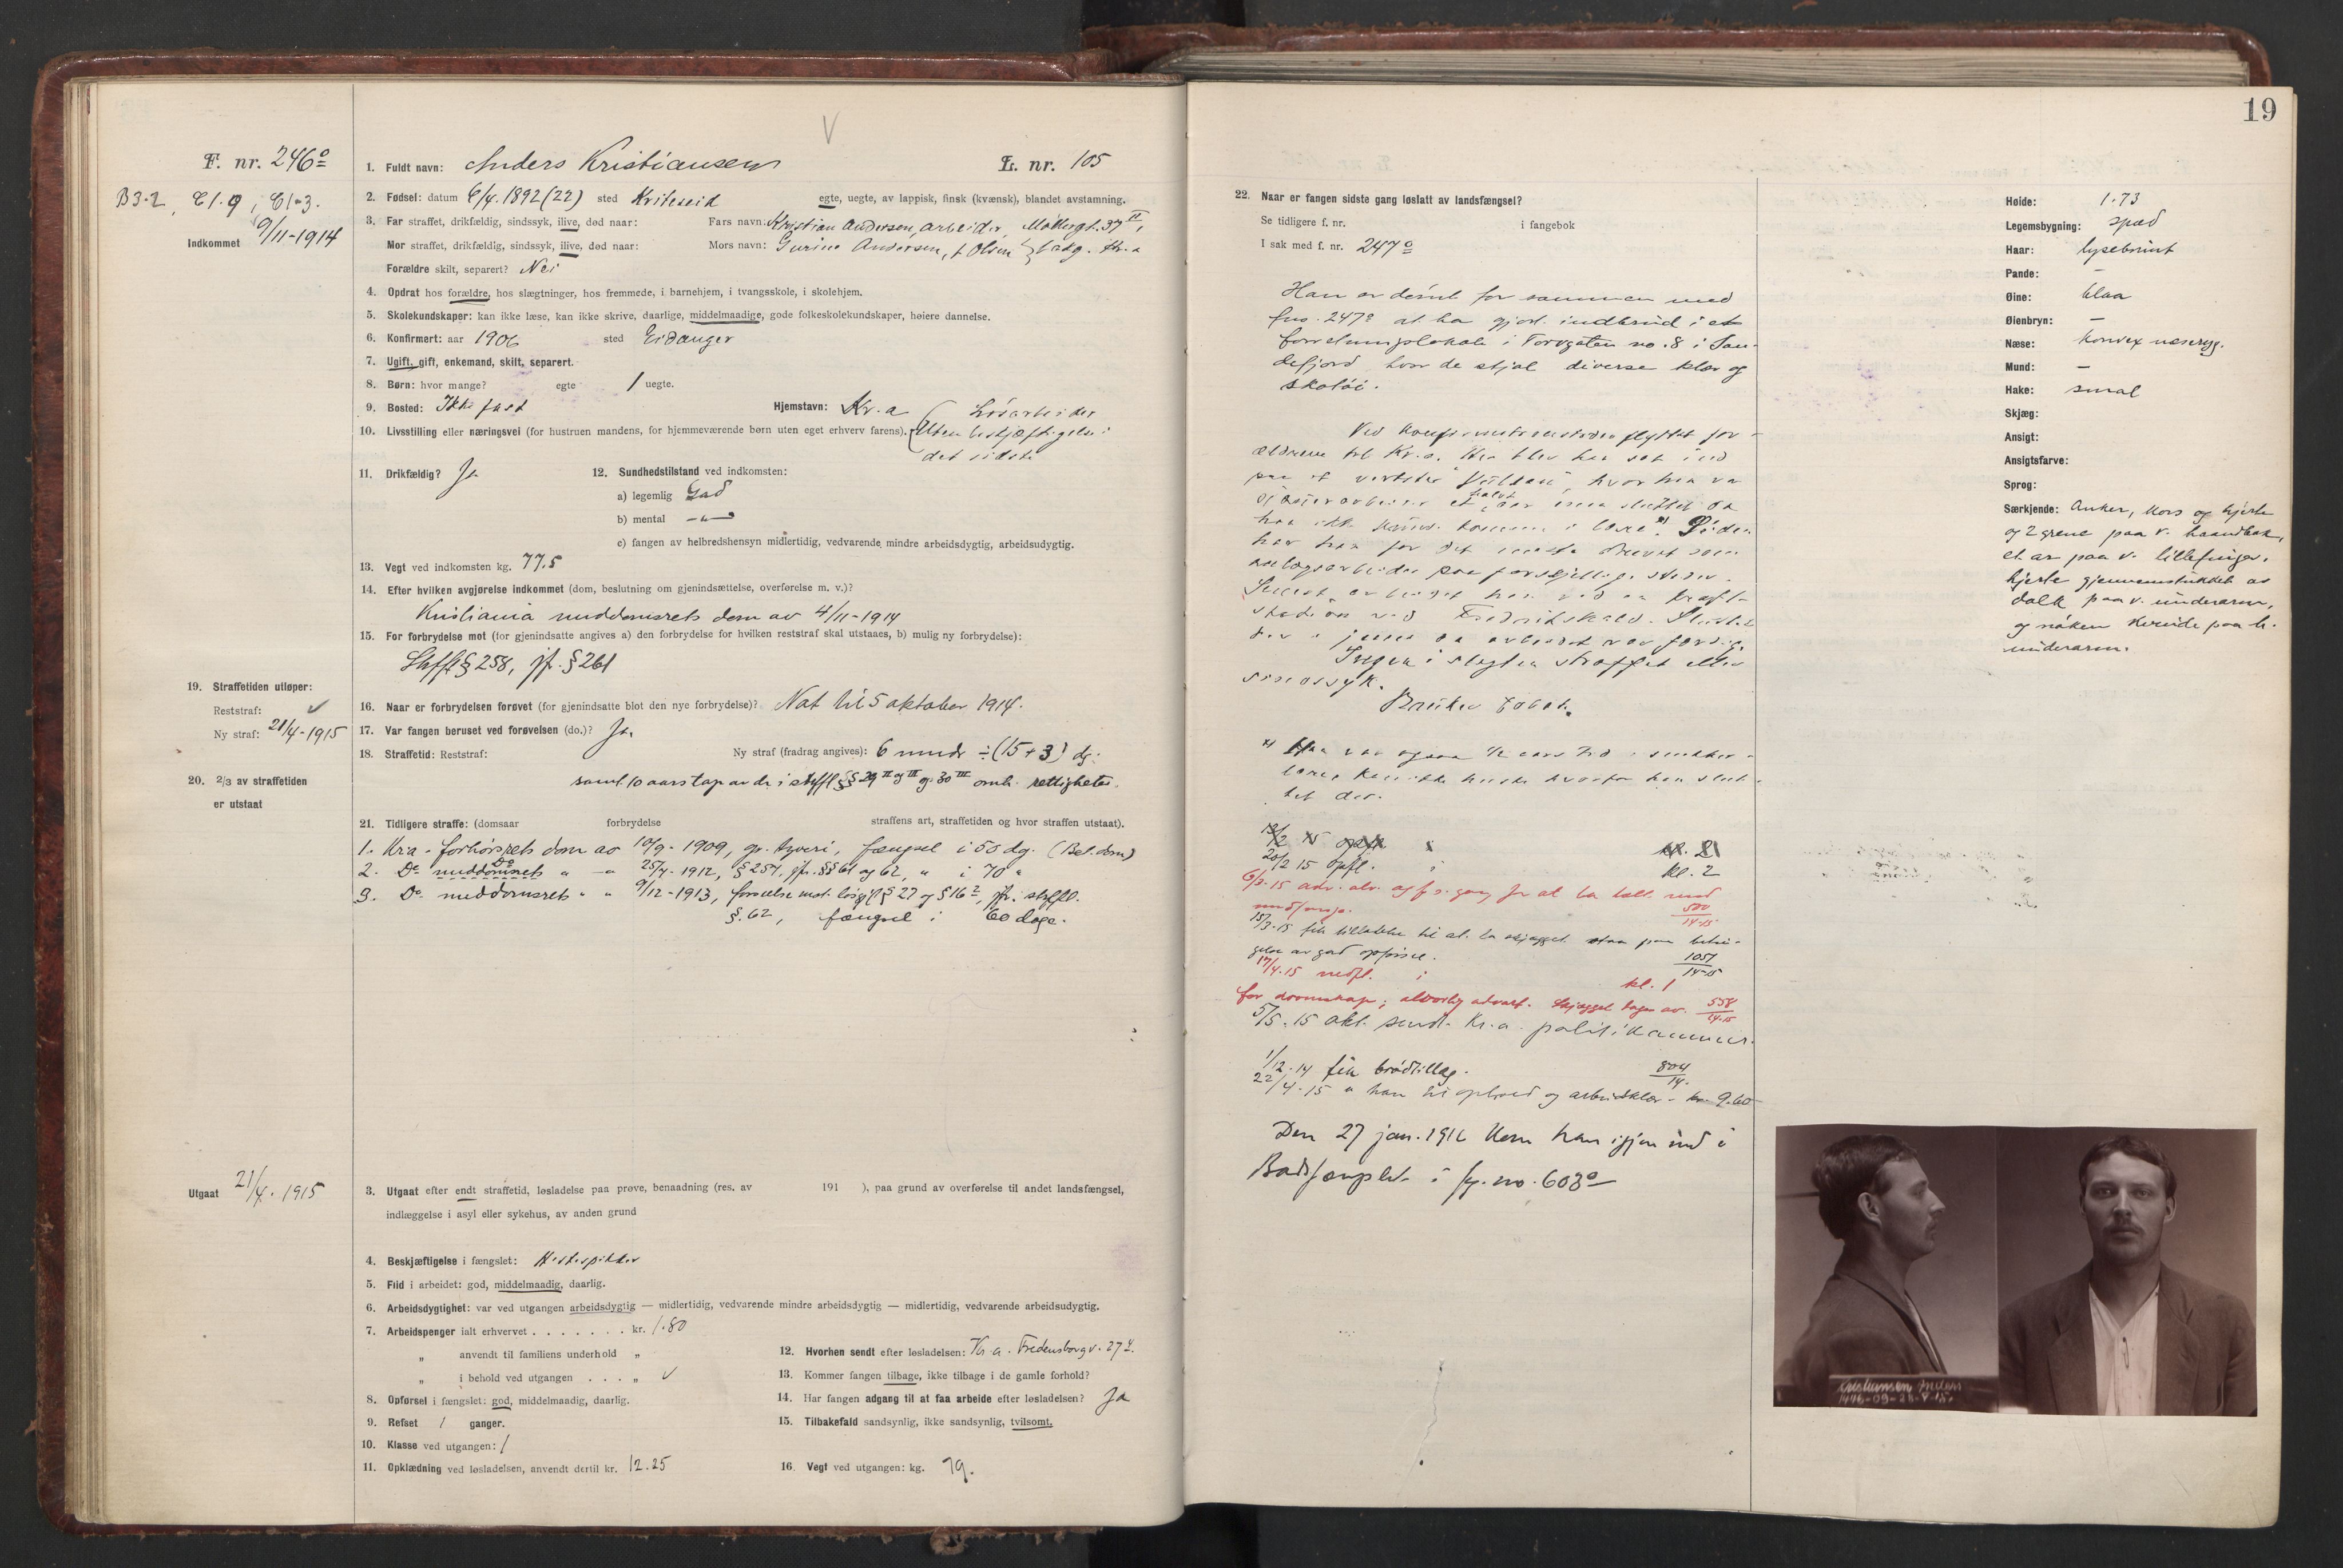 19
F. nr. 246º
1. Fuldt navn: Anders Kristiansen
L. nr. 105
B3-2, C1-9, C1-3.
Indkommet 9/11-1914
2. Fødsel: datum 6/4.1892 (22) sted Kviteseid egte, uegte, av lappisk, finsk (kvænsk), blandet avstamning.
3. Far straffet, drikfældig, sindssyk, ilive, død naar: Fars navn: Kristian Andersen, arbeider, Møllergt. 37 II,
Mor straffet, drikfældig, sindssyk, ilive, død naar: Mors navn: Gurine Andersen, f. Olsen bakg. Kr.a
Forældre skilt, separert? Nei
4. Opdrat hos forældre, hos slægtninger, hos fremmede, i barnehjem, i tvangsskole, i skolehjem.
5. Skolekundskaper: kan ikke læse, kan ikke skrive, daarlige, middelmaadige, gode folkeskolekundskaper, høiere dannelse.
6. Konfirmert: aar 1906 sted Eidanger
7. Ugift, gift, enkemand, skilt, separert.
8. Børn: hvor mange? egte 1 uegte.
9. Bosted: Ikke fast Hjemstavn: Kr.a
10. Livsstilling eller næringsvei (for hustruen mandens, for hjemmeværende børn uten eget erhverv farens). Løsarbeider
Uten beskjæftigelse i
det sidste
11. Drikfældig? Ja
12. Sundhedstilstand ved indkomsten:
a) legemlig God
b) mental -"-
c) fangen av helbredshensyn midlertidig, vedvarende mindre arbeidsdygtig, arbeidsudygtig.
13. Vegt ved indkomsten kg. 77.5
14. Efter hvilken avgjørelse indkommet (dom, beslutning om gjenindsættelse, overførelse m. v.)?
Kristiania meddomsrets dom av 4/11-1914
15. For forbrydelse mot (for gjenindsatte angives a) den forbrydelse for hvilken reststraf skal utstaaes, b) mulig ny forbrydelse):
Strfl § 258, jf. § 261
19. Straffetiden utløper:
Reststraf:
Ny straf: 21/4-1915
16. Naar er forbrydelsen forøvet (for gjenindsatte blot den nye forbrydelse)? Nat til 5 oktober 1914.
17. Var fangen beruset ved forøvelsen (do.)? Ja.
18. Straffetid: Reststraf: Ny straf (fradrag angives): 6 mndr ÷ (15+3) dg.
samt 10 aars tap av de i strfl §§ 29 II og III og 30 III omh. rettigheter.
20. 2/3 av straffetiden
er utstaat
21. Tidligere straffe: (domsaar forbrydelse straffens art, straffetiden og hvor straffen utstaat).
1. Kra - forhørsrets dom av 10/9-1909, gr. tyveri, fængsel i 50 dg. (Bet. dom)
2. Dº meddomsrets " - 25/4-1912, § 257, jfr. §§ 61 og 62, " i 70 "
3. Dº meddomsrets " " 9/12-1913, forseelse mot løsgjl § 27 og § 16², jfr. strfl.
§. 62, fængsel i 60 dage.
Utgaat 21/4.1915
3. Utgaat efter endt straffetid, løsladelse paa prøve, benaadning (res. av 191 ), paa grund av overførelse til andet landsfængsel,
indlæggelse i asyl eller sykehus, av anden grund
4. Beskjæftigelse i fængslet: Hestespikker
5. Flid i arbeidet: god, middelmaadig, daarlig.
6. Arbeidsdygtighet: var ved utgangen arbeidsdygtig — midlertidig, vedvarende mindre arbeidsdygtig — midlertidig, vedvarende arbeidsudygtig.
7. Arbeidspenger ialt erhvervet . . . . . . . kr. 1.80
" anvendt til familiens underhold "
" i behold ved utgangen . . . "
8. Opførsel i fængslet: god, middelmaadig, daarlig.
9. Refset 1 ganger.
10. Klasse ved utgangen: 1
11. Opklædning ved løsladelsen, anvendt dertil kr. 12.25
12. Hvorhen sendt efter løsladelsen: Kr.a. Fredensborgv. 27 4.
13. Kommer fangen tilbage, ikke tilbage i de gamle forhold?
14. Har fangen adgang til at faa arbeide efter løsladelsen? Ja
15. Tilbakefald sandsynlig, ikke sandsynlig, tvilsomt.
16. Vegt ved utgangen: kg. 79.
22. Naar er fangen sidste gang løslatt av landsfængsel?
Se tidligere f. nr. i fangebok
I sak med f. nr. 247º
Han er dømt for sammen med
fno. 247º at ha gjort indbrud i et
forretningslokale i Torvgaten no. 8 i San-
defjord, hvor de stjal diverse klær og
skotøi.
Ved konfirmationstiden flyttet for-
ældrene til Kr.a. Her blev han sat ind
paa et verksted hvor han var
har ikke kommet i lære. Siden
har han for det meste drevet som
anlægsarbeider paa forskjellige steder.
Senest arbeidet han ved en kraft-
station ved Fredrikshald. Sluttet
der i juni da arbeidet var færdig.
Ingen i slegten straffet eller
sindssyk.
Bruker tobak.
x) Han var ogsaa 1/2 aars tid i snekker-
lære, kan ikke huske hvorfor han slut-
tet der.
20/2 15 opfl. i kl. 2
6/3.15 adv. alv. og f. s. gang for at ha talt med
medfange. 500/14-15
15/3-15 fik tillatelse til at la skjægget staa paa betin-
gelse av god opførsel. 1051/14-15
17/4.15 nedfl. i kl. 1
for dovenskap; alvorlig advart. Skjægget tages av. 558/14-15
5/5.15 akt. sendt Kr.a. politikammer.
1/12.14 fik brødtillæg. 804/14.
22/4-15 " han til ophold og arbeidsklær - kr. 9.60
Den 27 jan. 1916 kom han igjen ind i
Botsfængslet i fg. no. 603º
Høide: 1.73
Legemsbygning: spæd
Haar: lysebrunt
Pande: —
Øine: blaa
Øienbryn: —
Næse: konvex næseryg.
Mund: —
Hake: smal
Skjæg:
Ansigt:
Ansigtsfarve:
Sprog:
Særkjende: Anker, kors og hjerte
og 2 grene paa v. haandbak,
et ar paa v. lillefinger,
hjerte gjennemstukket av
dolk paa v. underarm,
og nøken kvinde paa h.
underarm.
Kristiansen Anders